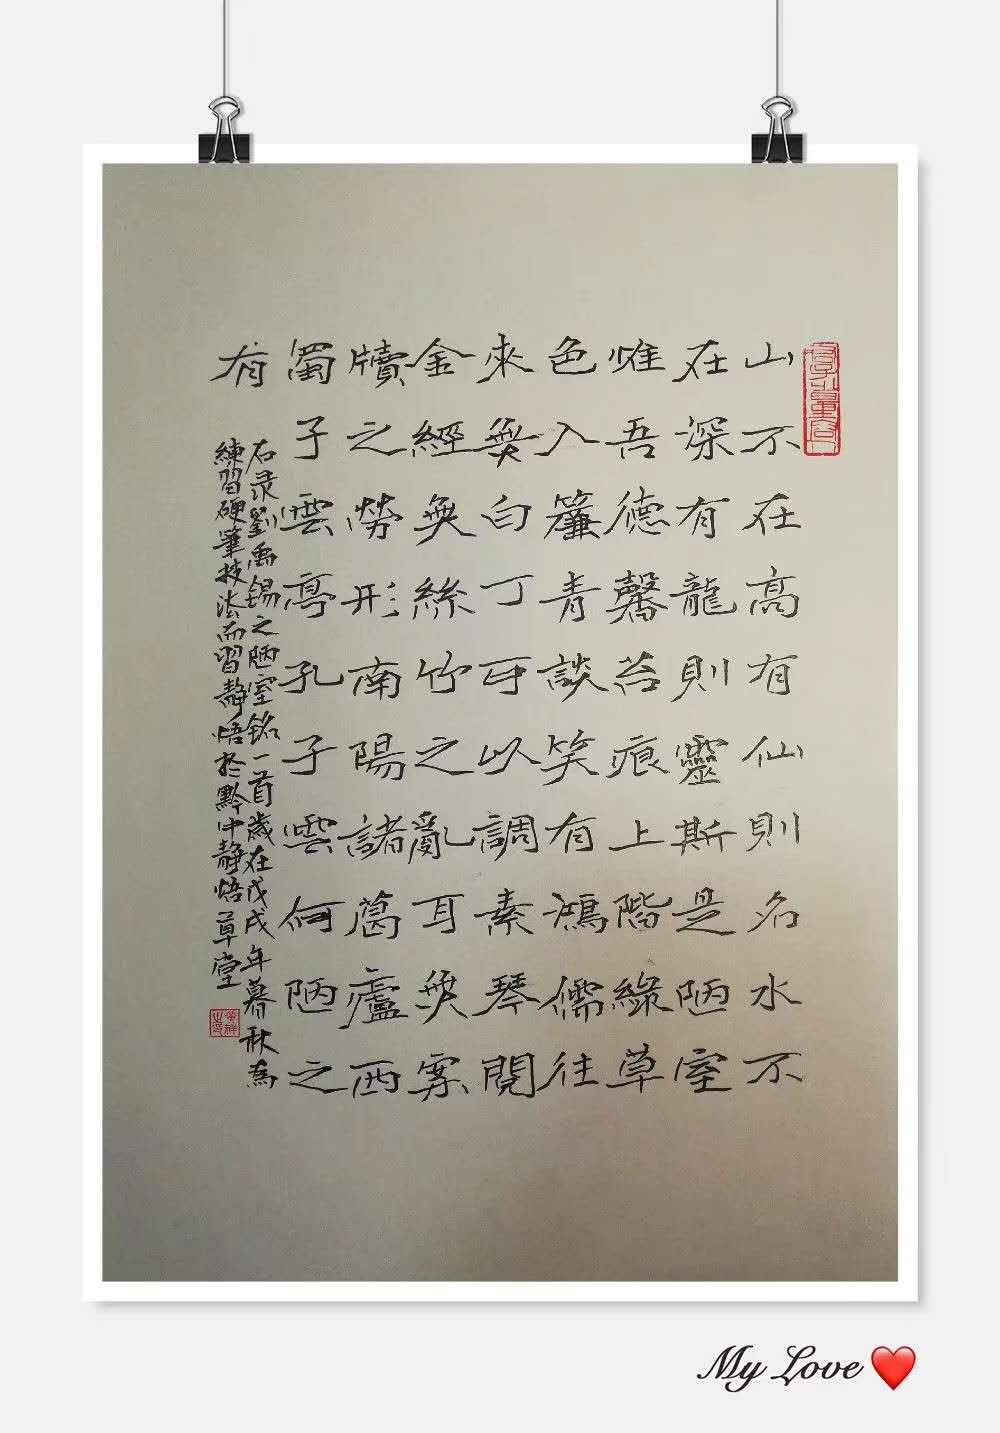 山不在高有仙則名水不
在深有龍則靈斯是陋室
惟吾德馨苔痕上階綠草
色入簾青談笑有鴻儒往
來無白丁可以調素琴閱
金經無絲竹之亂耳無案
牘之勞形南陽諸葛廬西
蜀子雲亭孔子雲何陋之
有
右录劉禹锡之陋室铭一首歲在戊戌年暮秋為
練習硬筆技法而習靜悟於黔中靜悟草堂
My Love